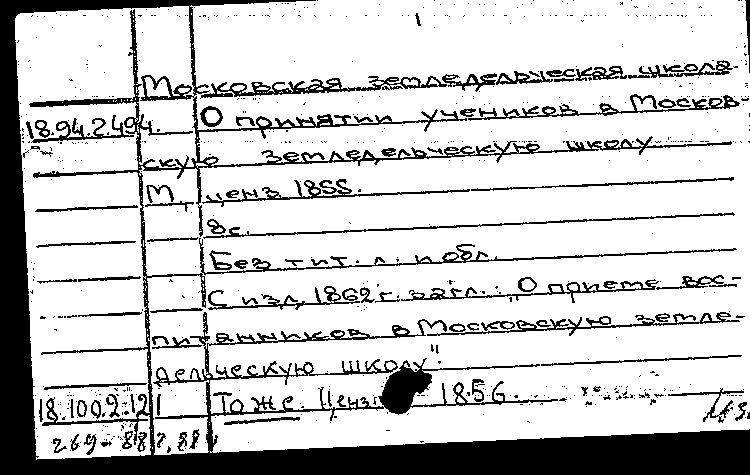 Московская земледельческая школа.
18.94.2.494. О принятии учеников в Москов-
скую земледельческую школу
М, ценз 1855.
8с.
Без тит. л. и обл.
С изд. 1862 г. загл.: „О приеме вос-
питанников в Московскую земле-
дельческую школу".
18.100.2.121 То же. Ценз. 1856.